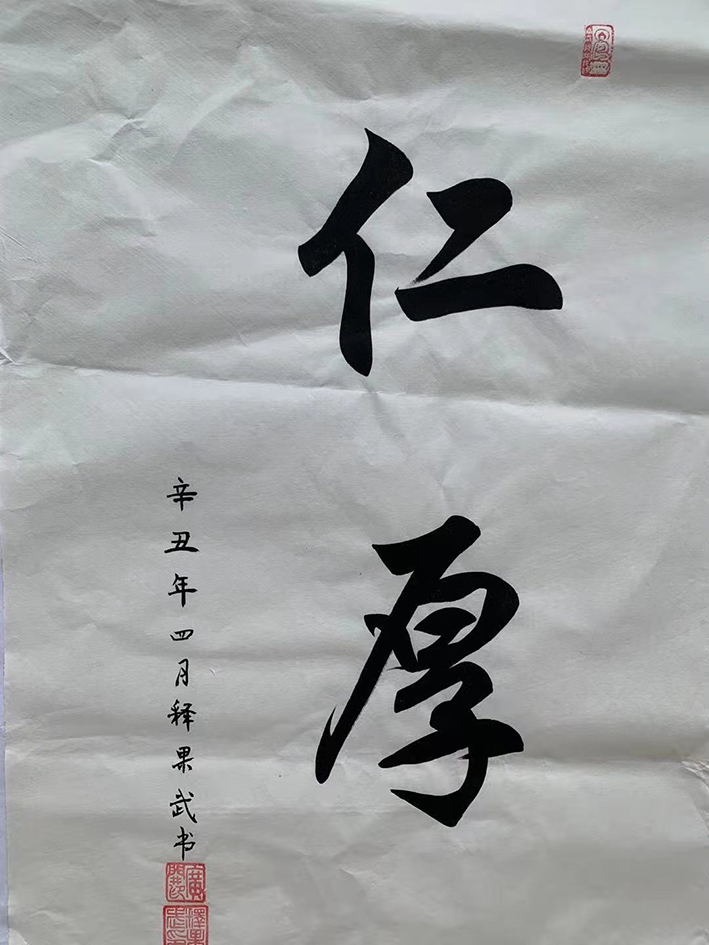 仁厚
辛丑年四月释果武书